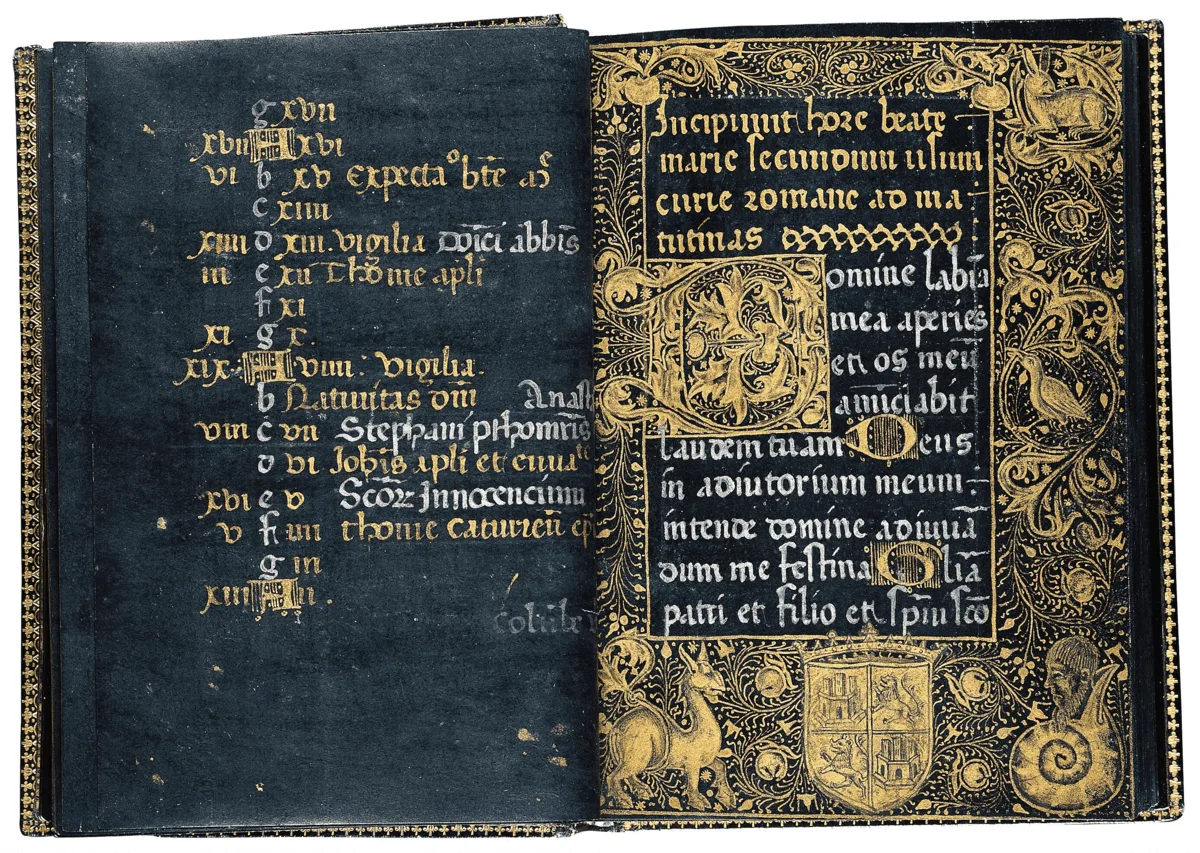 g xvii
xvii A xvi
vi b xv Expectaº bte
c xiiii
xiiii d xiii. vigilia dnici abbis
iii e xii Thome apli
f xi
xi g x.
xix A viiii. vigilia.
b Nativitas dni Anast
viii c vii Stephani pthomris
d vi Johis apli et euua
xvi e v Scoꝝ Innocencium
v f iiii thome caturien ep
g iii
xiii A ii.
Incipiunt hore beate
marie secundum usum
curie romane ad ma
tutinas
Domine labia
mea aperies
et os meū
anūciabit
laudem tuam Deus
in adiutorium meum
intende domine adiuuā
dum me festina Glīa
patri et filio et spiriu sco